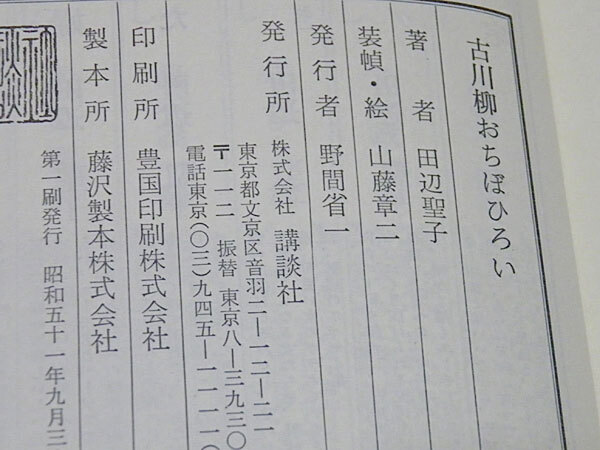 古川柳おちぼひろい
著者 田辺聖子
装幀・絵 山藤章二
発行者 野間省一
発行所 株式会社 講談社
東京都文京区音羽二―一二―二一
〒一一二 振替 東京八―三九三〇
電話東京(〇三)九四五―一一一一
印刷所 豊国印刷株式会社
製本所 藤沢製本株式会社
第一刷発行 昭和五十一年九月三